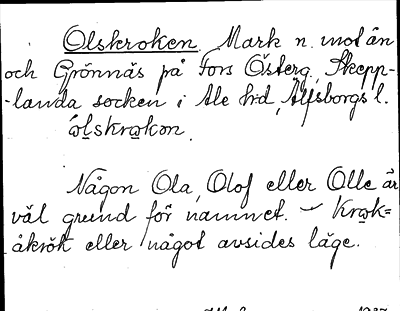 Olskroken. Mark n. mot ån
och Grönnäs på Fors Österg., Skepp-
-landa socken i Ale hd, Älfsborgs l.
ὼlskrωkon.
Någon Ola, Olof eller Olle är
väl grund för namnet. – Krωk=
åkrök eller något avsides läge.